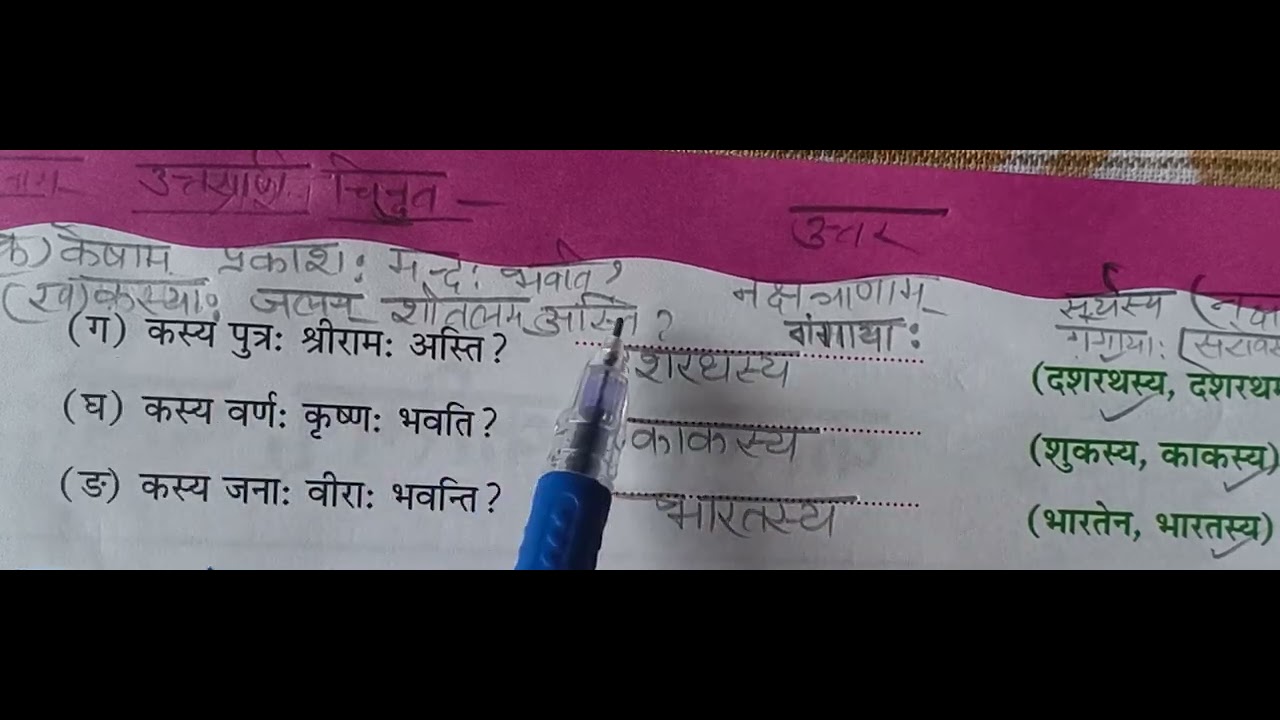 उत्तराणि चिनुत –
उत्तर
क) केषाम प्रकाशः मन्दः भवति? नक्षत्राणाम् सूर्यस्य
(ख) कस्याः जलम् शीतलम् अस्ति? गंगायाः गंगायाः
(ग) कस्य पुत्रः श्रीरामः अस्ति? शरथस्य (दशरथस्य,
(घ) कस्य वर्णः कृष्णः भवति? काकस्य (शुकस्य, काकस्य)
(ङ) कस्य जनाः वीराः भवन्ति? भारतस्य (भारतेन, भारतस्य)